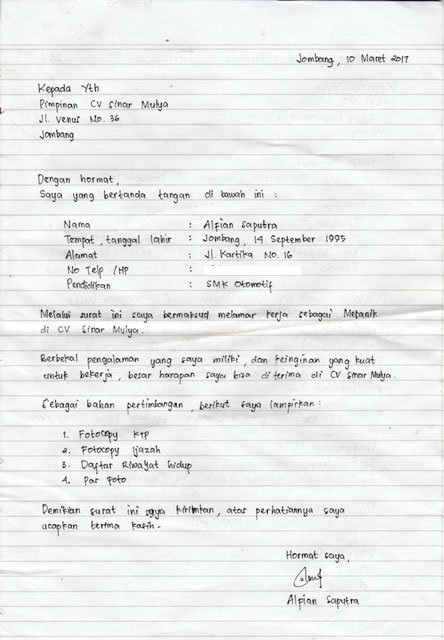 Jombang, 10 Maret 2017
Kepada Yth
Pimpinan CV Sinar Mulya
Jl. Venus No. 36
Jombang
Dengan hormat,
Saya yang bertanda tangan di bawah ini :
Nama : Alfian Saputra
Tempat, tanggal lahir : Jombang, 14 September 1995
Alamat : Jl. Kartika No. 16
No Telp /HP :
Pendidikan : SMK Otomotif
Melalui surat ini saya bermaksud melamar kerja sebagai Mekanik
di CV Sinar Mulya.
Berbekal pengalaman yang saya miliki, dan keinginan yang kuat
untuk bekerja, besar harapan saya bisa diterima di CV Sinar Mulya.
Sebagai bahan pertimbangan, berikut saya lampirkan :
1. Fotocopy KTP
2. Fotocopy Ijazah
3. Daftar Riwayat hidup
4. Pas Foto
Demikian surat ini saya kirimkan, atas perhatiannya saya
ucapkan terima kasih.
Hormat saya,
Alfian Saputra